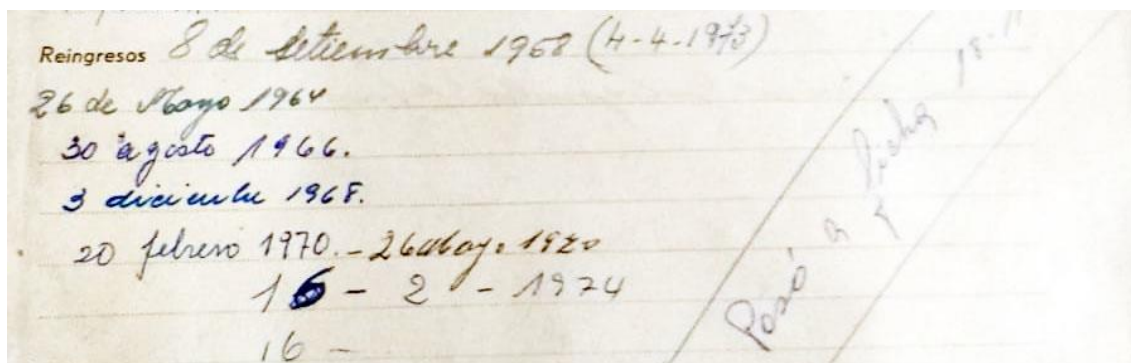 Reingresos 8 de Setiembre 1968 (4-4-1973)
26 de Mayo 1964
30 agosto 1966.
3 diciembre 1968.
20 febrero 1970. - 26 Mayo 1970
16 - 2 - 1974
16 -
Pasó a ficha 18-1